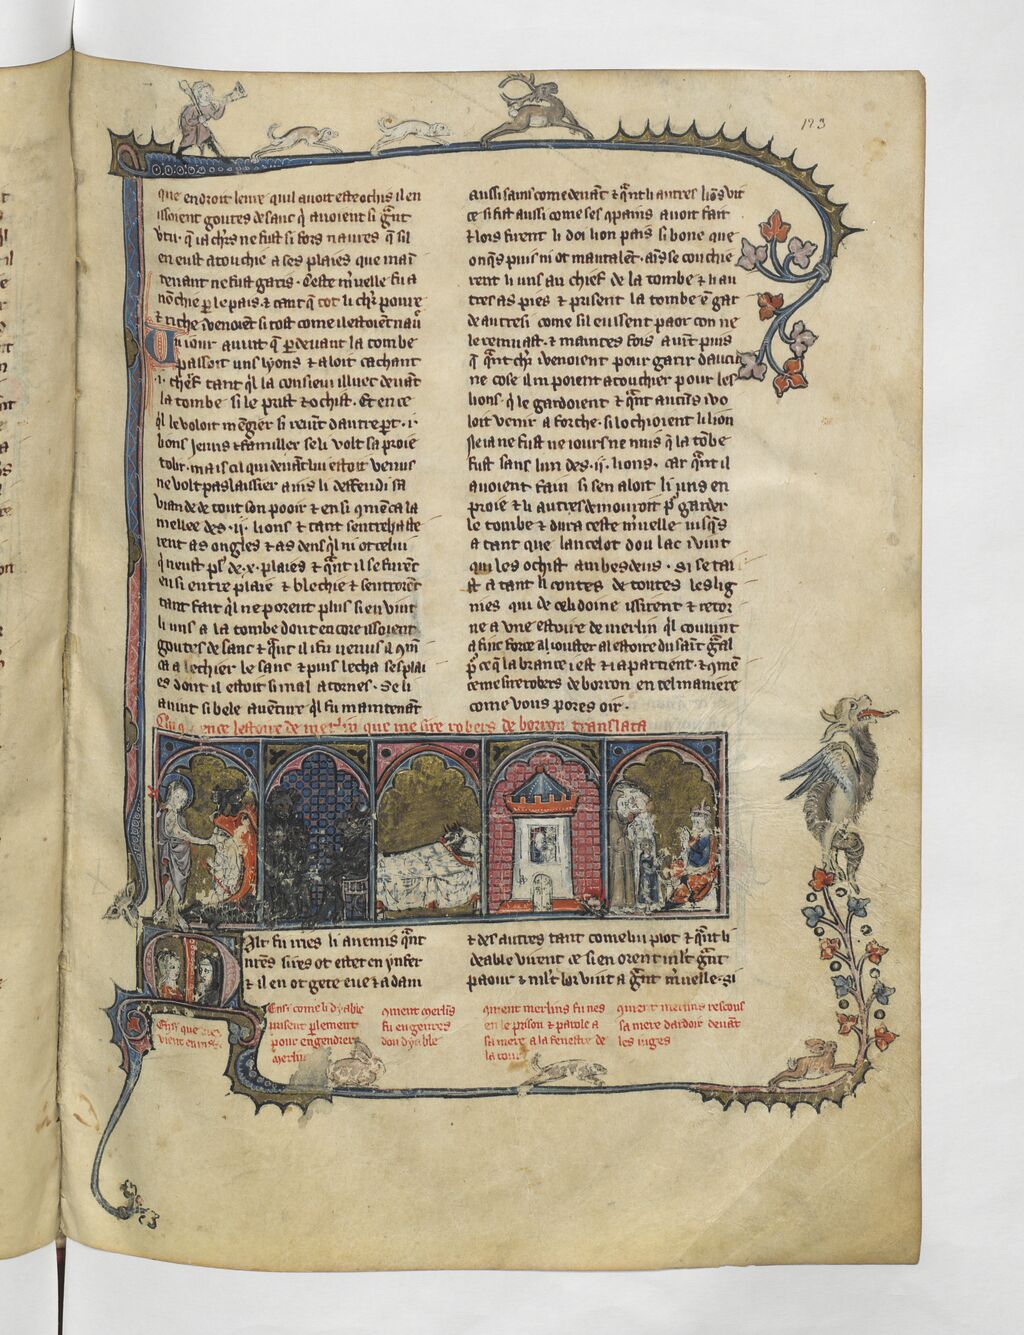 123
que endroit leure quil avoit este ochis il en
issoient goutes de sanc q̃ avoient si gr̃nt
vtu · q̃ ia ch̃rs ne fust si fors naures q̃ sil
en eust atouchie a ses plaies que main
tenant ne fust garis · Ceste mʼuelle fu a
nõchie ꝑ le pais ⁊ tant q̃ tot li ch̃r poure
⁊ riche i venoient si tost come il estoient nau
Un iour auint q̃ ꝑ deuant la tombe
passoit uns lyons ⁊ aloit cachant
·i· cherf tant q̃l la consieui illuec deuãt
la tombe si le prist ⁊ ochist · Et en ce
q̃l le voloit mẽgier si reuĩt dautre ꝑt ·i·
lions
tolir · mais cil qui deuãt lui estoit venus
ne volt pas laissier ains li deffendi sa
viande de tout son pooir ⁊ ensi qmẽca la
mellee des ·ij· lions ⁊ tant
rent as ongles ⁊ as dens q̃l ni ot celui
q̃ neust pl9 de ·x· plaies ⁊ q̃nt il se furẽt
ensi entre plaie ⁊ blechie ⁊
tant fait q̃l ne porent plus si en vint
li uns a la tombe dont encore issoient
goutes de sanc ⁊ q̃nt il i fu venus il qmẽ
ca a lechier le sanc ⁊ puis lecha ses plai
es dont il estoit si mal atornes · Se li
auint si bele auẽture q̃l fu maintenãt
aussi sains come deuãt ⁊ q̃nt li autres lions vit
ce si fist aussi come ses qpains auoit fait
⁊ lors furent li doi lion pais si bone que
onq̃s puis ni ot mautalẽt · ains se couchie
rent li uns au chief de la tombe ⁊ li au
tres as pies ⁊ prisent la tombe ẽ gar
de autresi come sil eussent paor con ne
le remuast · ⁊ maintes fois auĩt puis
q̃ q̃nt ch̃r i venoient pour garir daucu
ne cose il ni poient atouchier pour les
lions · q̃ le gardoient ⁊ q̃nt aucũs i vo
loit venir a forche · si lochioient li lion
ne ia ne fust ne iours ne nuis q̃ la tõbe
fust sans lun des ·ij· lions · car q̃nt il
auoient fain si sen aloit li uns en
proie ⁊ li autres demouroit pʼ garder
le tombe ⁊ dura ceste mʼuelle iusq̃s
a tant que lancelot dou lac i vint
qui les ochist ambesdeus · Si se tai
st a tant li contes de toutes les lig
nies qui de celidoine issirent ⁊ retor
ne a vne estoire de merlin q̃l couuint
a fine force aiouster al estoire du saĩt gr̃al
pʼ ce q̃ la brance i est ⁊ i apartient · ⁊ qmẽ
ce mesire robers de borron en tel maniere
come vous pores oir ·
Chi qmence lestoire de merlin que me sire robers de borron translata
Mlt fu iries li anemis q̃nt
nr̃es sires ot estet en ynfer
⁊ il en ot gete eue ⁊ adam
⁊ des autres tant come lui plot ⁊ q̃nt li
deable virent ce si en orent ml't gr̃nt
paour ⁊ ml't lor vint a gr̃nt mʼuelle · si
Ensi come li dyable
prisent ꝑlement
pour engendrer
merlin
qment merlins
fu engenres
dou dyable
qment merlins fu nes
en le prison ⁊ parole a
sa mere a la fenestre de
la tour
qment merlins rescous
sa mere dardoir deuãt
les iuges